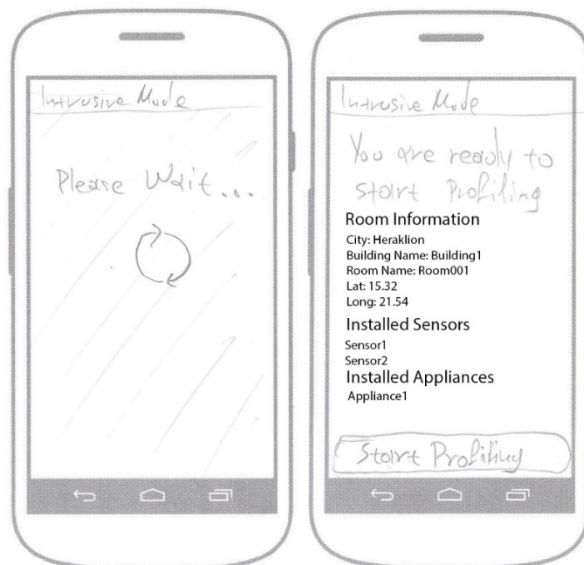 Intrusive Mode
Please Wait...
Intrusive Mode
You are ready to
start Profiling
Room Information
City: Heraklion
Building Name: Building1
Room Name: Room001
Lat: 15.32
Long: 21.54
Installed Sensors
Sensor1
Sensor2
Installed Appliances
Appliance1
Start Profiling